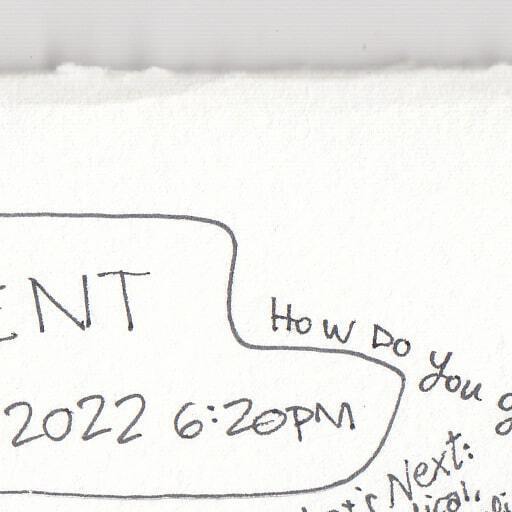 ENT
2022 6:20PM
How Do you g
Next: